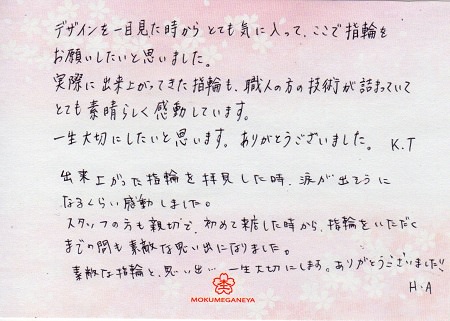 デザインを一目見た時からとても気に入って、ここで指輪を
お願いしたいと思いました。
実際に出来上がってきた指輪も、職人の方の技術が詰まっていて
とても素晴らしく感動しています。
一生大切にしたいと思います。ありがとうございました。 K.T
出来上がった指輪を拝見した時、涙が出そうに
なるくらい感動しました。
スタッフの方も親切で、初めて来店した時から、指輪をいただく
までの間も素敵な思い出になりました。
素敵な指輪と、思い出… 一生大切にします。ありがとうございました!!
H.A
MOKUMEGANEYA